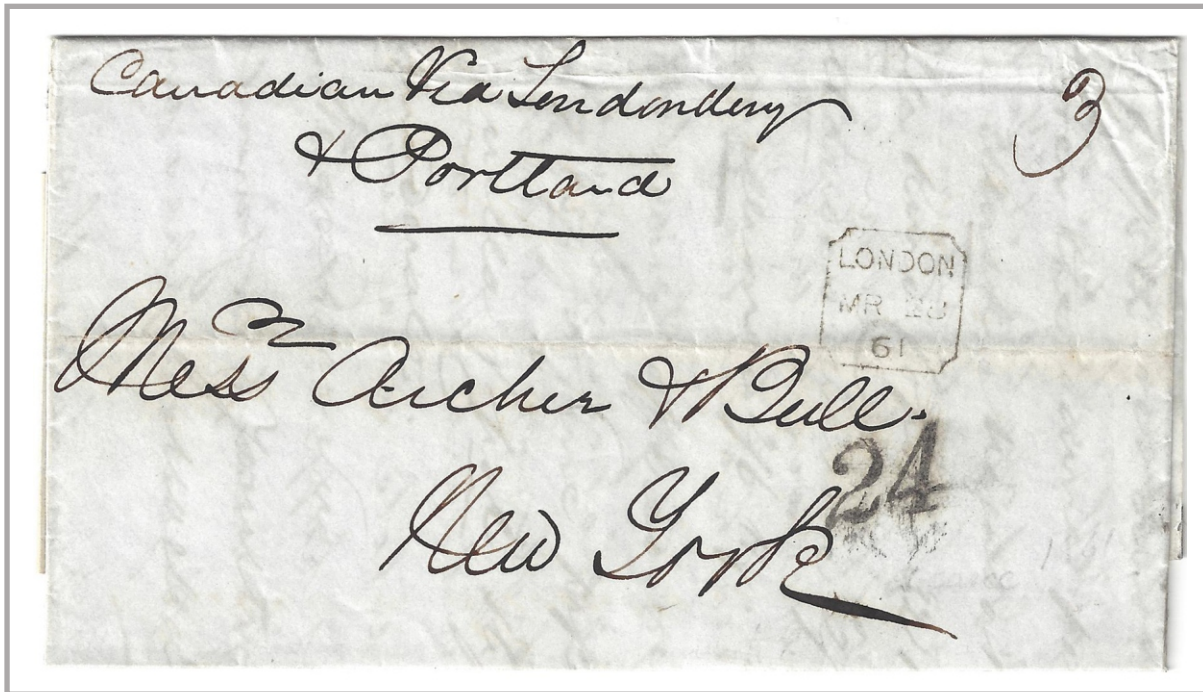 Canadian Via Londonderry
& Portland
3
LONDON
MR 28
61
Messrs Archer & Bull.
24
New York